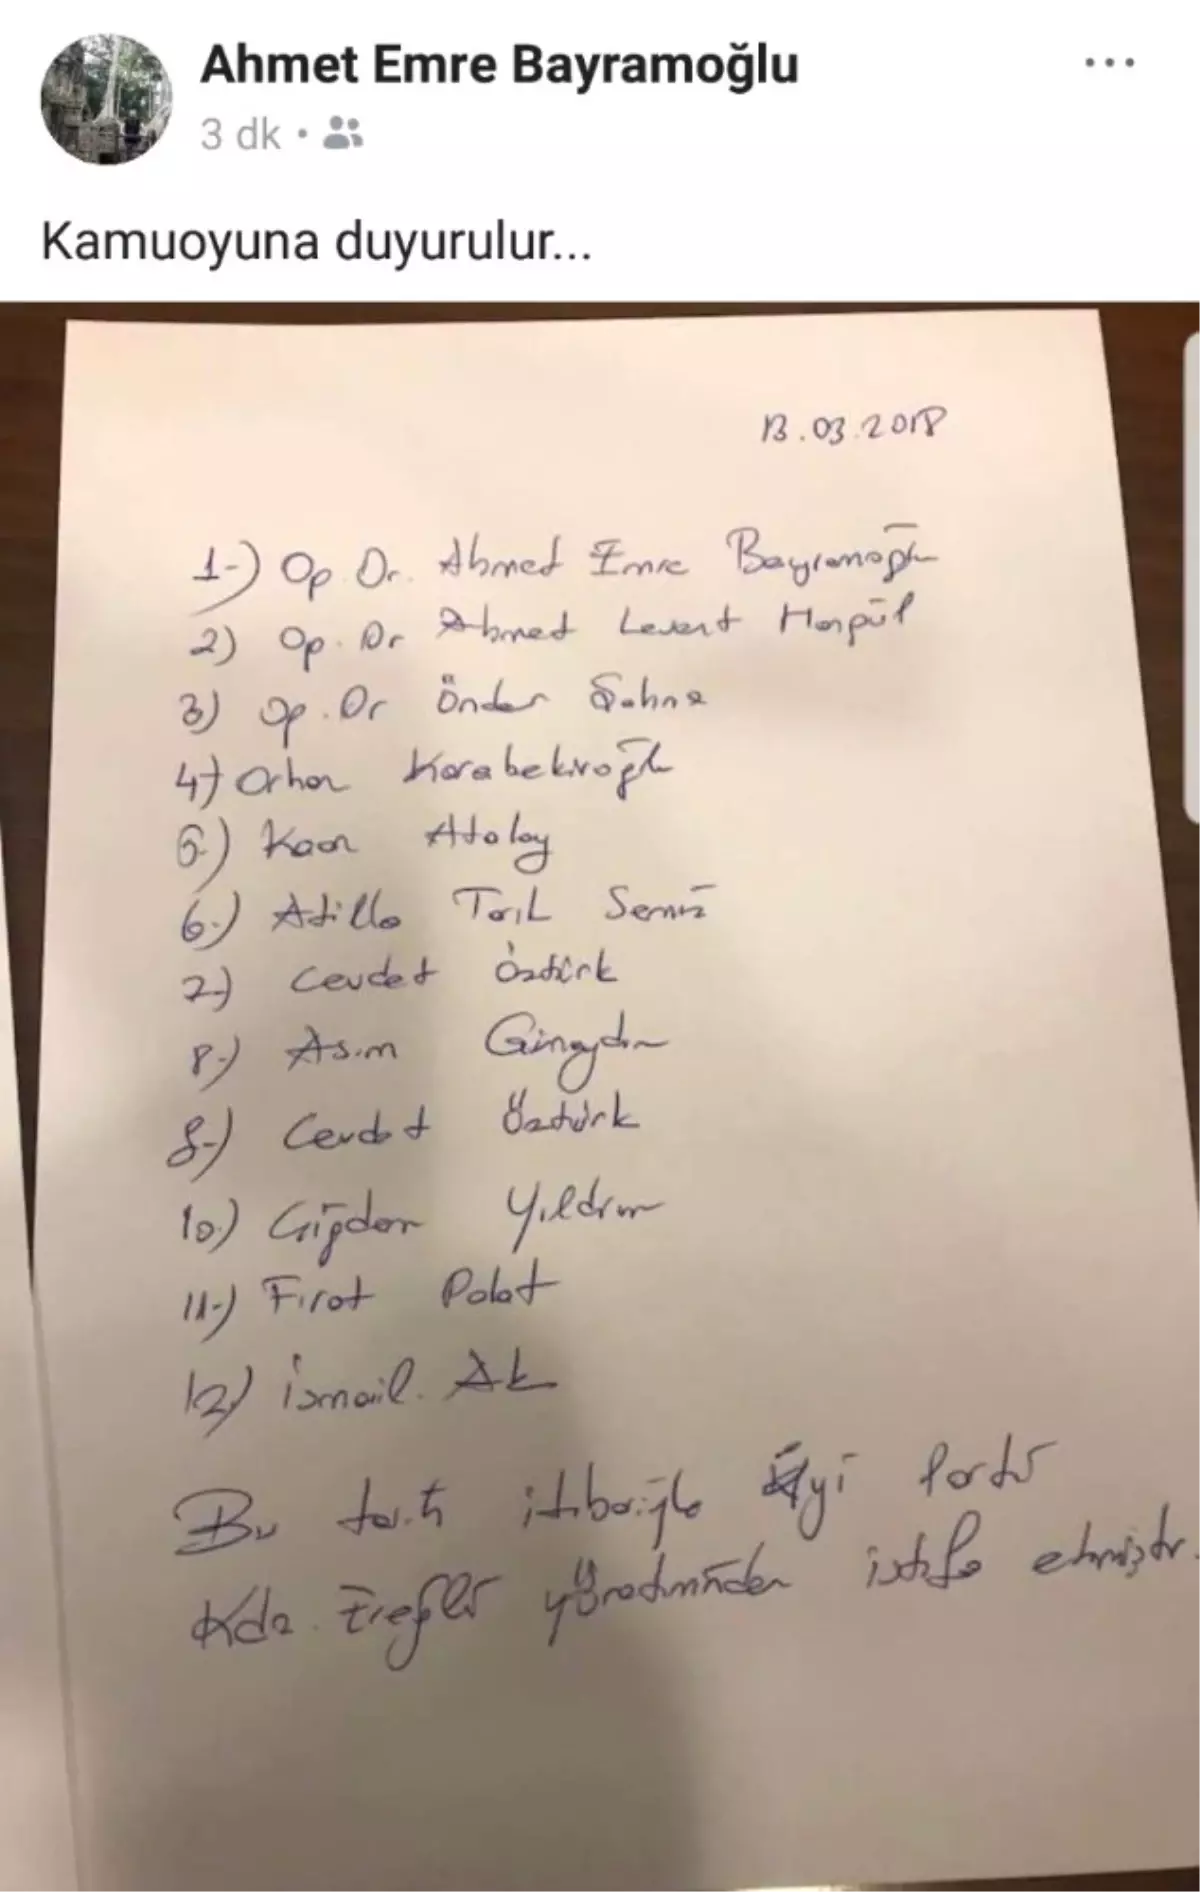 Ahmet Emre Bayramoğlu
3 dk
Kamuoyuna duyurulur...
13.03.2018
1-) Op. Dr. Ahmed Emre Bayramoğlu
2) Op. Dr Ahmed Levent
3) Op. Dr Önder
4-) Orhan Karabekiroğlu
5-) Kaan Atalay
6-) Atilla Semiz
7-) Cevdet Öztürk
8-) Asım Günaydın
9-) Cevdet Öztürk
10-) Çiğdem Yıldırım
11-) Fırat Polat
12) İsmail Ak
Bu tarih itibariyle iyi Parti
Kdz. Ereğli yönetiminden istifa etmiştir.